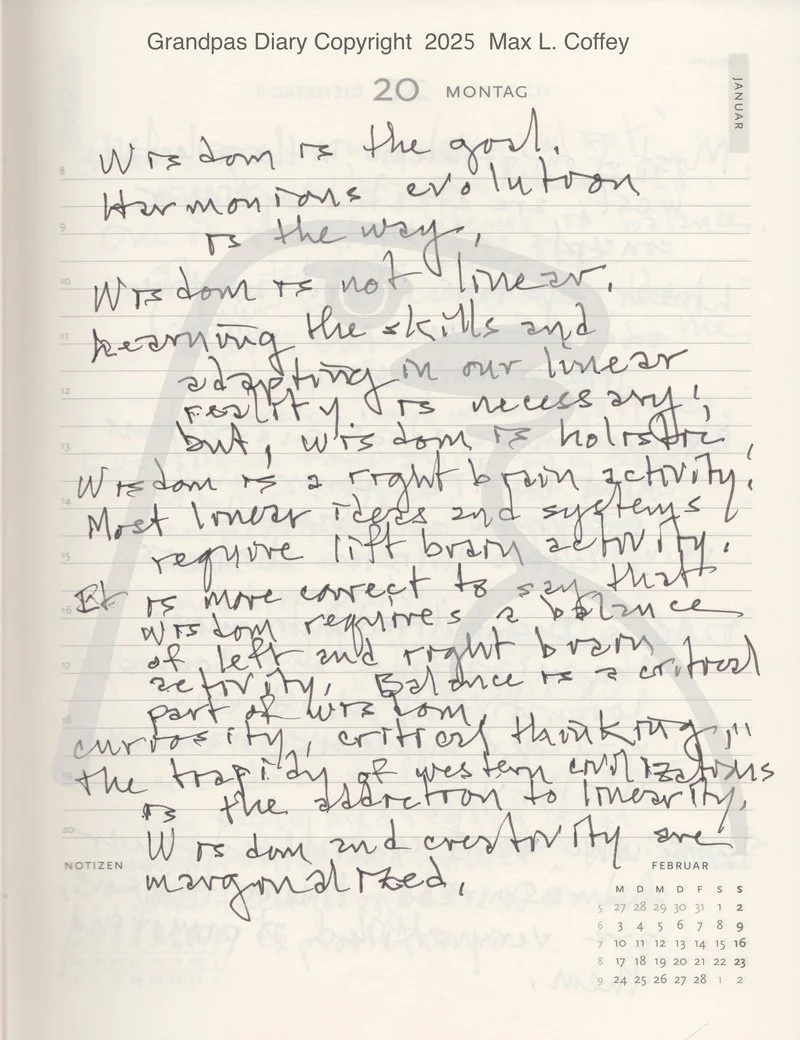 Grandpas Diary Copyright 2025 Max L. Coffey
20 MONTAG
JANUAR
Wisdom is the goal.
Harmonions evolution
is the way.
Wisdom is not linear.
Learning the skills and
adapting in our linear
reality is necessary;
but, wisdom is holistic.
Wisdom is a right brain activity.
Most linear ideas and systems
require lift brain activity.
It is more correct to say that
wisdom requires a balance
of left and right brain
activity. Balance is a critical
part of wisdom
curiosity, critical thinking,,,
the tragidy of western civilizations
is the addiction to linearity.
Wisdom and creativity are
marginalized.
8
9
10
11
12
13
14
15
16
17
18
19
20
NOTIZEN
FEBRUAR
M D M D F S S
5 27 28 29 30 31 1 2
6 3 4 5 6 7 8 9
7 10 11 12 13 14 15 16
8 17 18 19 20 21 22 23
9 24 25 26 27 28 1 2